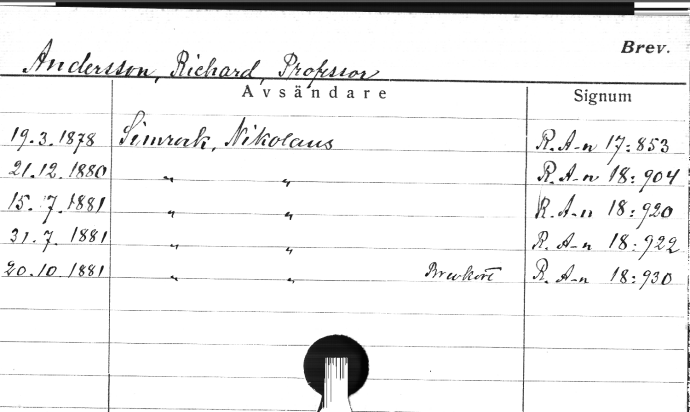 Brev.
Andersson, Richard, Professor
Avsändare Signum
19.3.1878 Simrock, Nikolaus R. A-n 17:853
21.12.1880 " " R. A-n 18:904
15.7.1881 " " R. A-n 18:920
31.7.1881 " " R. A-n 18:922
20.10.1881 " " Brevkort R. A-n 18:930